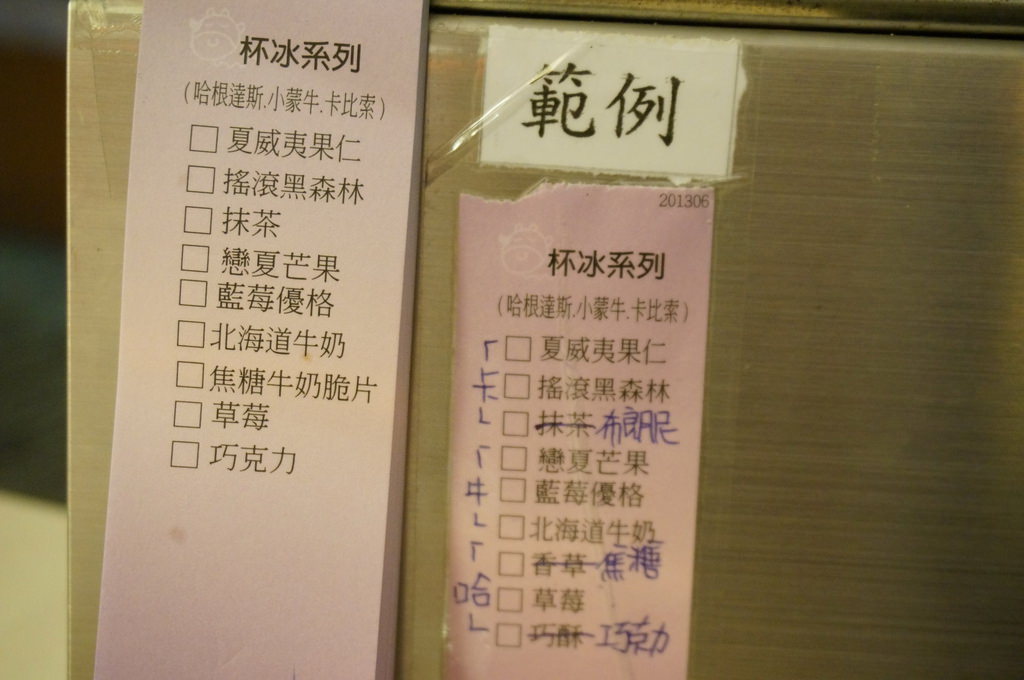 杯冰系列
(哈根達斯.小蒙牛.卡比索)
□ 夏威夷果仁
□ 搖滾黑森林
□ 抹茶
□ 戀夏芒果
□ 藍莓優格
□ 北海道牛奶
□ 焦糖牛奶脆片
□ 草莓
□ 巧克力
範例
201306
杯冰系列
(哈根達斯.小蒙牛.卡比索)
「 □ 夏威夷果仁
卡 □ 搖滾黑森林
」 □ 抹茶 布朗尼
「 □ 戀夏芒果
牛 □ 藍莓優格
」 □ 北海道牛奶
「 □ 香草 焦糖
哈 □ 草莓
」 □ 巧酥 巧克力